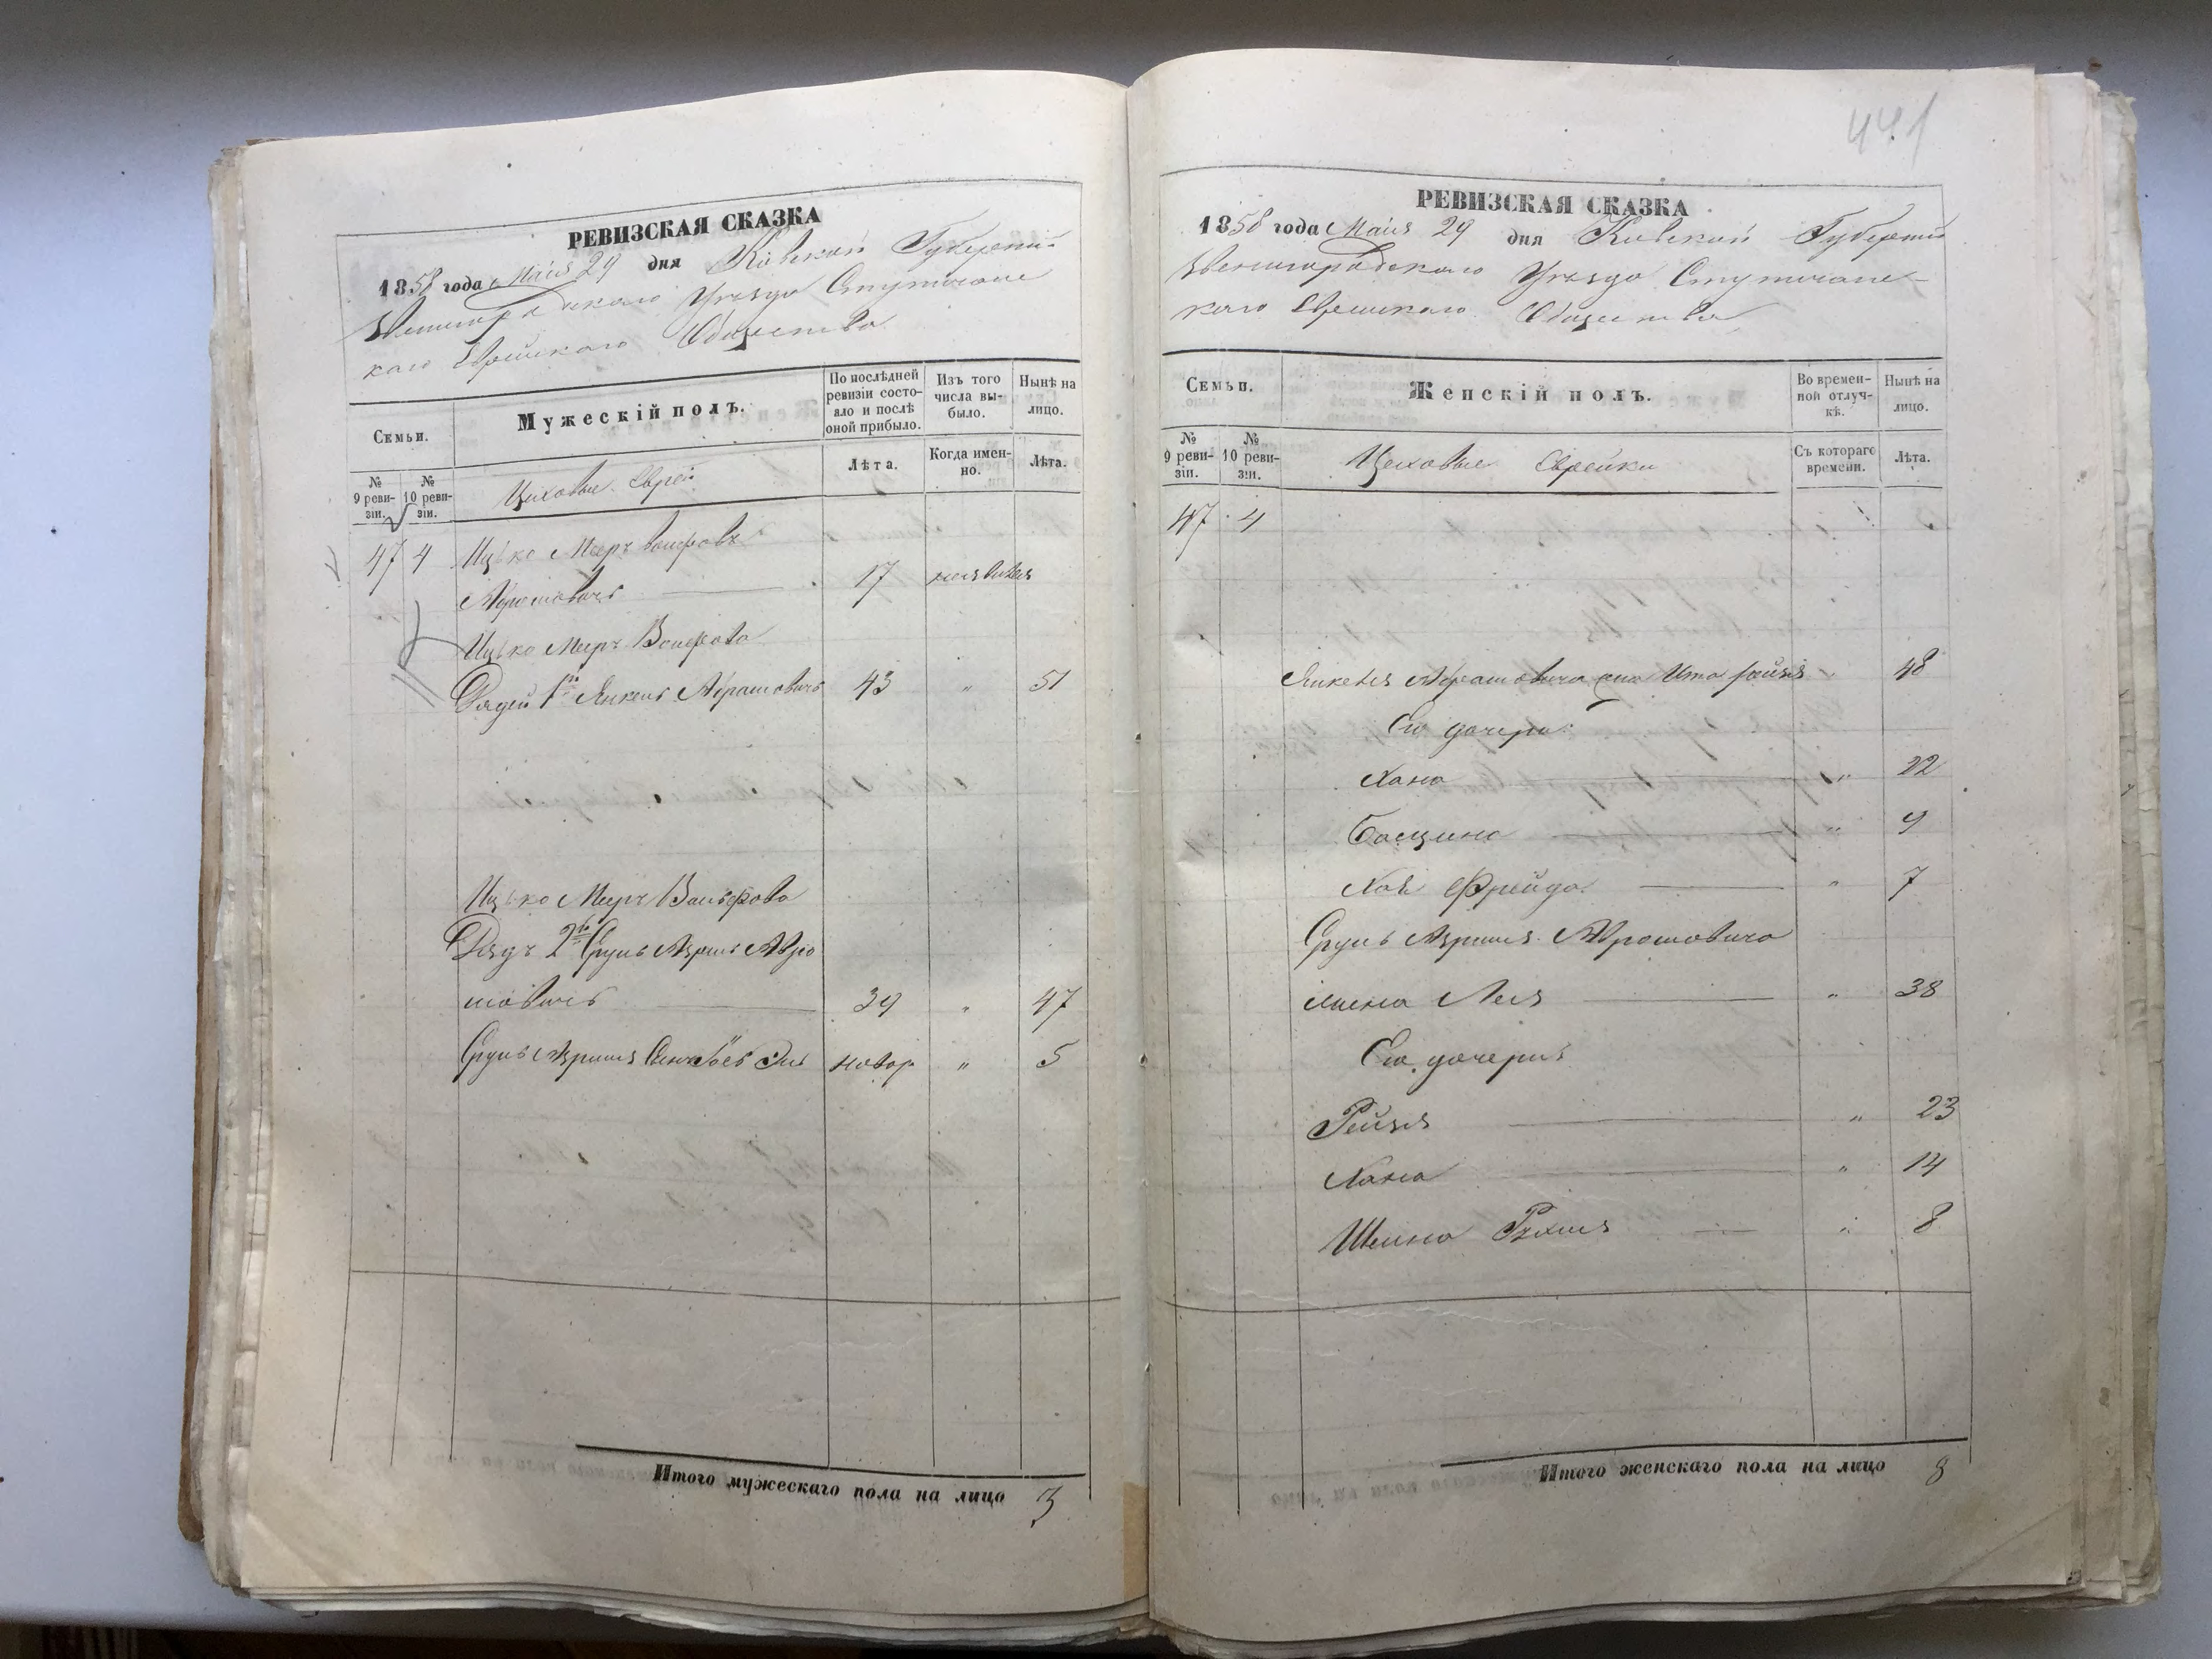 РЕВИЗСКАЯ СКАЗКА
1858 года Маія 29 дня Кіевской Губерніи
Звенигородскаго Уѣзда
каго Еврейскаго Общества
Семьи.
Мужескій полъ.
По послѣдней ревизіи состояло и послѣ оной прибыло.
Изъ того числа выбыло.
Нынѣ на лицо.
№ 9 ревизіи.
№ 10 ревизіи.
Цеховые Евреи
Лѣта.
Когда именно.
Лѣта.
47 4 Ицько Мееръ
Абрамовичъ 17
Ицько Меера
Дядей 1й Янкель Абрамовичъ 43 " 51
Ицько Меера
Дядя 2й Сруль Авро
мовичъ 39 " 47
Сруль новор " 5
Итого мужескаго пола на лицо 3
441
РЕВИЗСКАЯ СКАЗКА
1858 года Маія 29 дня Кіевской Губерніи
Звенигородскаго Уѣзда
каго Еврейскаго Общества
Семьи.
Женскій полъ.
Во временной отлучкѣ.
Нынѣ на лицо.
№ 9 ревизіи.
№ 10 ревизіи.
Цеховые Еврейки
Съ котораго времени.
Лѣта.
47 4
Янкеля Абрамовича жена Ита " 48
Его дочери:
Хана " 22
" 9
Хая Фрейда " 7
Сруль Абрамовича
жена Лея " 38
Его дочери
Рейзя " 23
Хана " 14
Шейна " 8
Итого женскаго пола на лицо 8